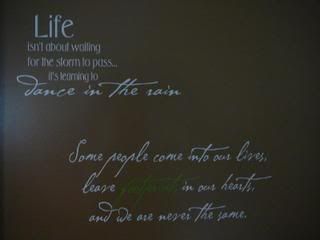 Life
isn't about waiting
for the storm to pass...
it's learning to
dance in the rain
Some people come into our lives,
leave footprints in our hearts,
and we are never the same.